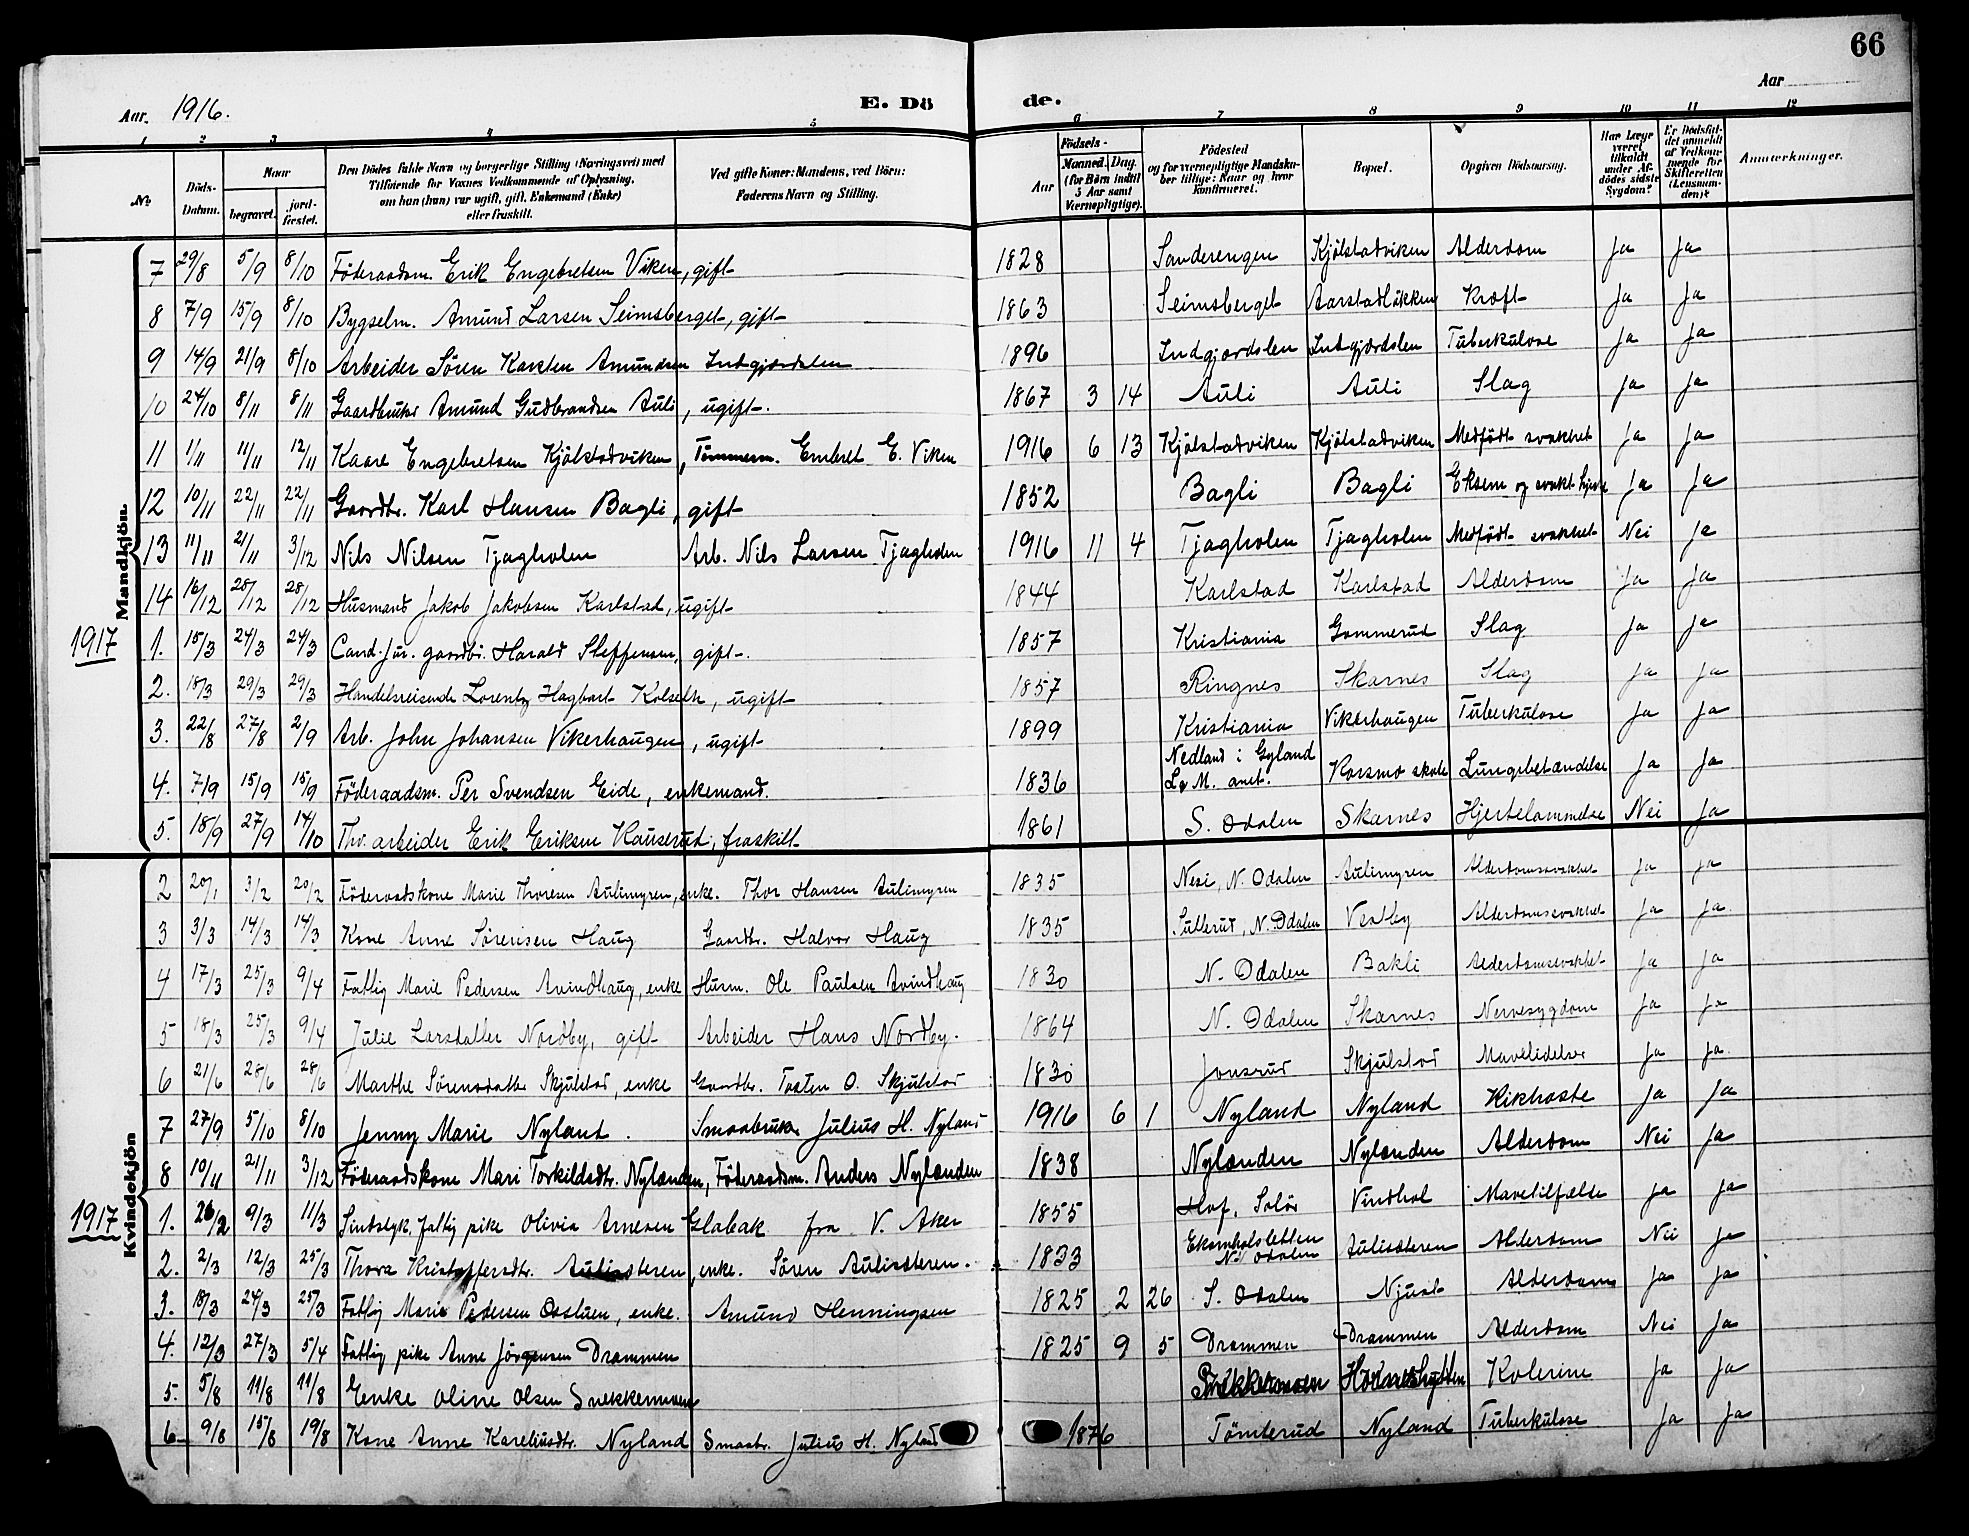 66
Aar. 1916. E. Dö de. Aar
1 2 3 4 5 6 7 8 9 10 11 12
№ Döds-Datum. Naar begravet. jordfæstet. Den Dödes fulde Navn og borgerlige Stilling (Næringsvei) med Tilföiende for Voxnes Vedkommende af Oplysning, om han (hun) var ugift, gift, Enkemand (Enke) eller fraskilt. Ved gifte Koner: Mandens, ved Börn: Faderens Navn og Stilling. Födsels- Aar Maaned. Dag. (for Börn indtil 5 Aar samt Værnepligtige). Födested og for værnepligtige Mandskaber tillige: Naar og hvor konfirmeret. Bopæl. Opgiven Dödsaarsag. Har Læge været tilkaldt under Afdödes sidste Sygdom? Er Dödsfaldet anmeldt af Vedkommende for Skifteretten (Lensmanden)? Anmærkninger.
Mandkjön.
7 29/8 5/9 8/10 Föderaadsm. Erik Engebretsen Viken, gift 1828 Sanderengen Kjölstadviken Alderdom Ja Ja
8 7/9 15/9 8/10 Bygselm. Amund Larsen Seimsberget, gift 1863 Seimsberget Aarstadlökken Kræft Ja Ja
9 14/9 21/9 8/10 Arbeider Sören Karsten Amundsen Indgjærdslen 1896 Indgjærdslen Indgjærdslen Tuberkulose Ja Ja
10 24/10 8/11 8/11 Gaardbruker Amund Gudbrandsen Auli, ugift. 1867 3 14 Auli Auli Slag Ja Ja
11 1/11 11/11 12/11 Kaare Engebretsen Kjölstadviken, Tömmerm. Embret E. Viken 1916 6 13 Kjölstadviken Kjölstadviken Medfödt svakhet Ja Ja
12 10/11 22/11 22/11 Gaardbr. Karl Hansen Bagli, gift 1852 Bagli Bagli Eksem og svakt hjerte Ja Ja
13 11/11 21/11 3/12 Nils Nilsen Tjagholen Arb. Nils Larsen Tjagholen 1916 11 4 Tjagholen Tjagholen Medfödt svakhet Nei Ja
14 16/12 28/12 28/12 Husmand Jakob Jakobsen Karlstad, ugift 1844 Karlstad Karlstad Alderdom Ja Ja
1917 1. 15/3 24/3 24/3 Cand. jur. gaardbr. Harald Steffensen, gift. 1857 Kristiania Gommerud Slag Ja Ja
2. 18/3 29/3 29/3 Handelsreisende Lorentz Hagbart Kolseth, ugift 1857 Ringnes Skarnes Slag Ja Ja
3. 22/8 27/8 2/9 Arb. John Johansen Vikerhaugen, ugift 1899 Kristiania Vikerhaugen Tuberkulose Ja Ja
4. 7/9 15/9 15/9 Föderaadsm. Per Svendsen Eide, enkemand. 1836 Nedland i Gyland L. & M. amt. Korsmo skole Lungebetændelse Ja Ja
5. 18/9 27/9 14/10 Thv. arbeider Erik Eriksen Kauserud, fraskilt 1861 S. Odalen Skarnes Hjertelammelse Nei Ja
Kvindekjön
2 20/1 3/2 20/2 Föderaadskone Marie Thoresen Aulimyren, enke. Thor Hansen Aulimyren 1835 Nesi, N. Odalen Aulimyren Alderdomssvakhet Ja Ja
3 3/3 14/3 14/3 Kone Anne Sörensen Haug Gaardbr. Halvor Haug 1835 Sullerud, N. Odalen Vestby Alderdomssvakhet Ja Ja.
4 17/3 25/3 9/4 Fattig Marie Pedersen Avindhaug, enke Husm. Ole Paulsen Avindhaug 1830 N. Odalen Bakli Alderdomssvakhet Ja Ja
5 18/3 25/3 9/4 Julie Larsdatter Nordby, gift Arbeider Hans Nordby. 1864 N. Odalen Skarnes Nervesygdom Ja Ja
6 21/6 28/6 28/6 Marthe Sörensdatter Skjulstad, enke Gaardbr. Tosten O. Skjulstad 1830 Jonsrud Skjulstad Mavelidelse Ja Ja.
7 27/9 5/10 8/10 Jenny Marie Nyland. Smaabruker Julius H. Nyland 1916 6 1 Nyland Nyland Kikhoste Ja Ja
8 10/11 21/11 3/12 Föderaadskone Mari Torkildsdtr. Nylænden, Föderaadsm. Anders Nylænden 1838 Nylænden Nylænden Alderdom Nei Ja
1917 1. 26/2 9/3 11/3 Sindssyk, fattig pike Olivia Arnesen Glabak fra V. Aker 1855 Hof, Solör Vindhol Mavetilfælde Ja Ja
2. 2/3 12/3 25/3 Thora Kristoffersdtr. Aulisæteren, enke. Sören Aulisæteren. 1833 Ekornholsletten N. Odalen Aulisæteren Alderdom Nei Ja
3. 18/3 24/3 25/3 Fattig Marie Pedersen Osstuen, enke. Amund Henningsen 1825 2 26 S. Odalen Njust Alderdom Ja Ja
4. 12/3 27/3 5/4 Fattig pike Anne Jörgensen Drammen 1825 9 5 Drammen Drammen Alderdom Nei Ja
5. 5/8 11/8 11/8 Enke Oline Olsen Snekkermoen Kolerine Ja Ja
6 9/8 15/8 19/8 Kone Anne Kareliusdtr. Nyland Smaabr. Julius H. Nyland 1876 Tömterud Nyland Tuberkulose Ja Ja